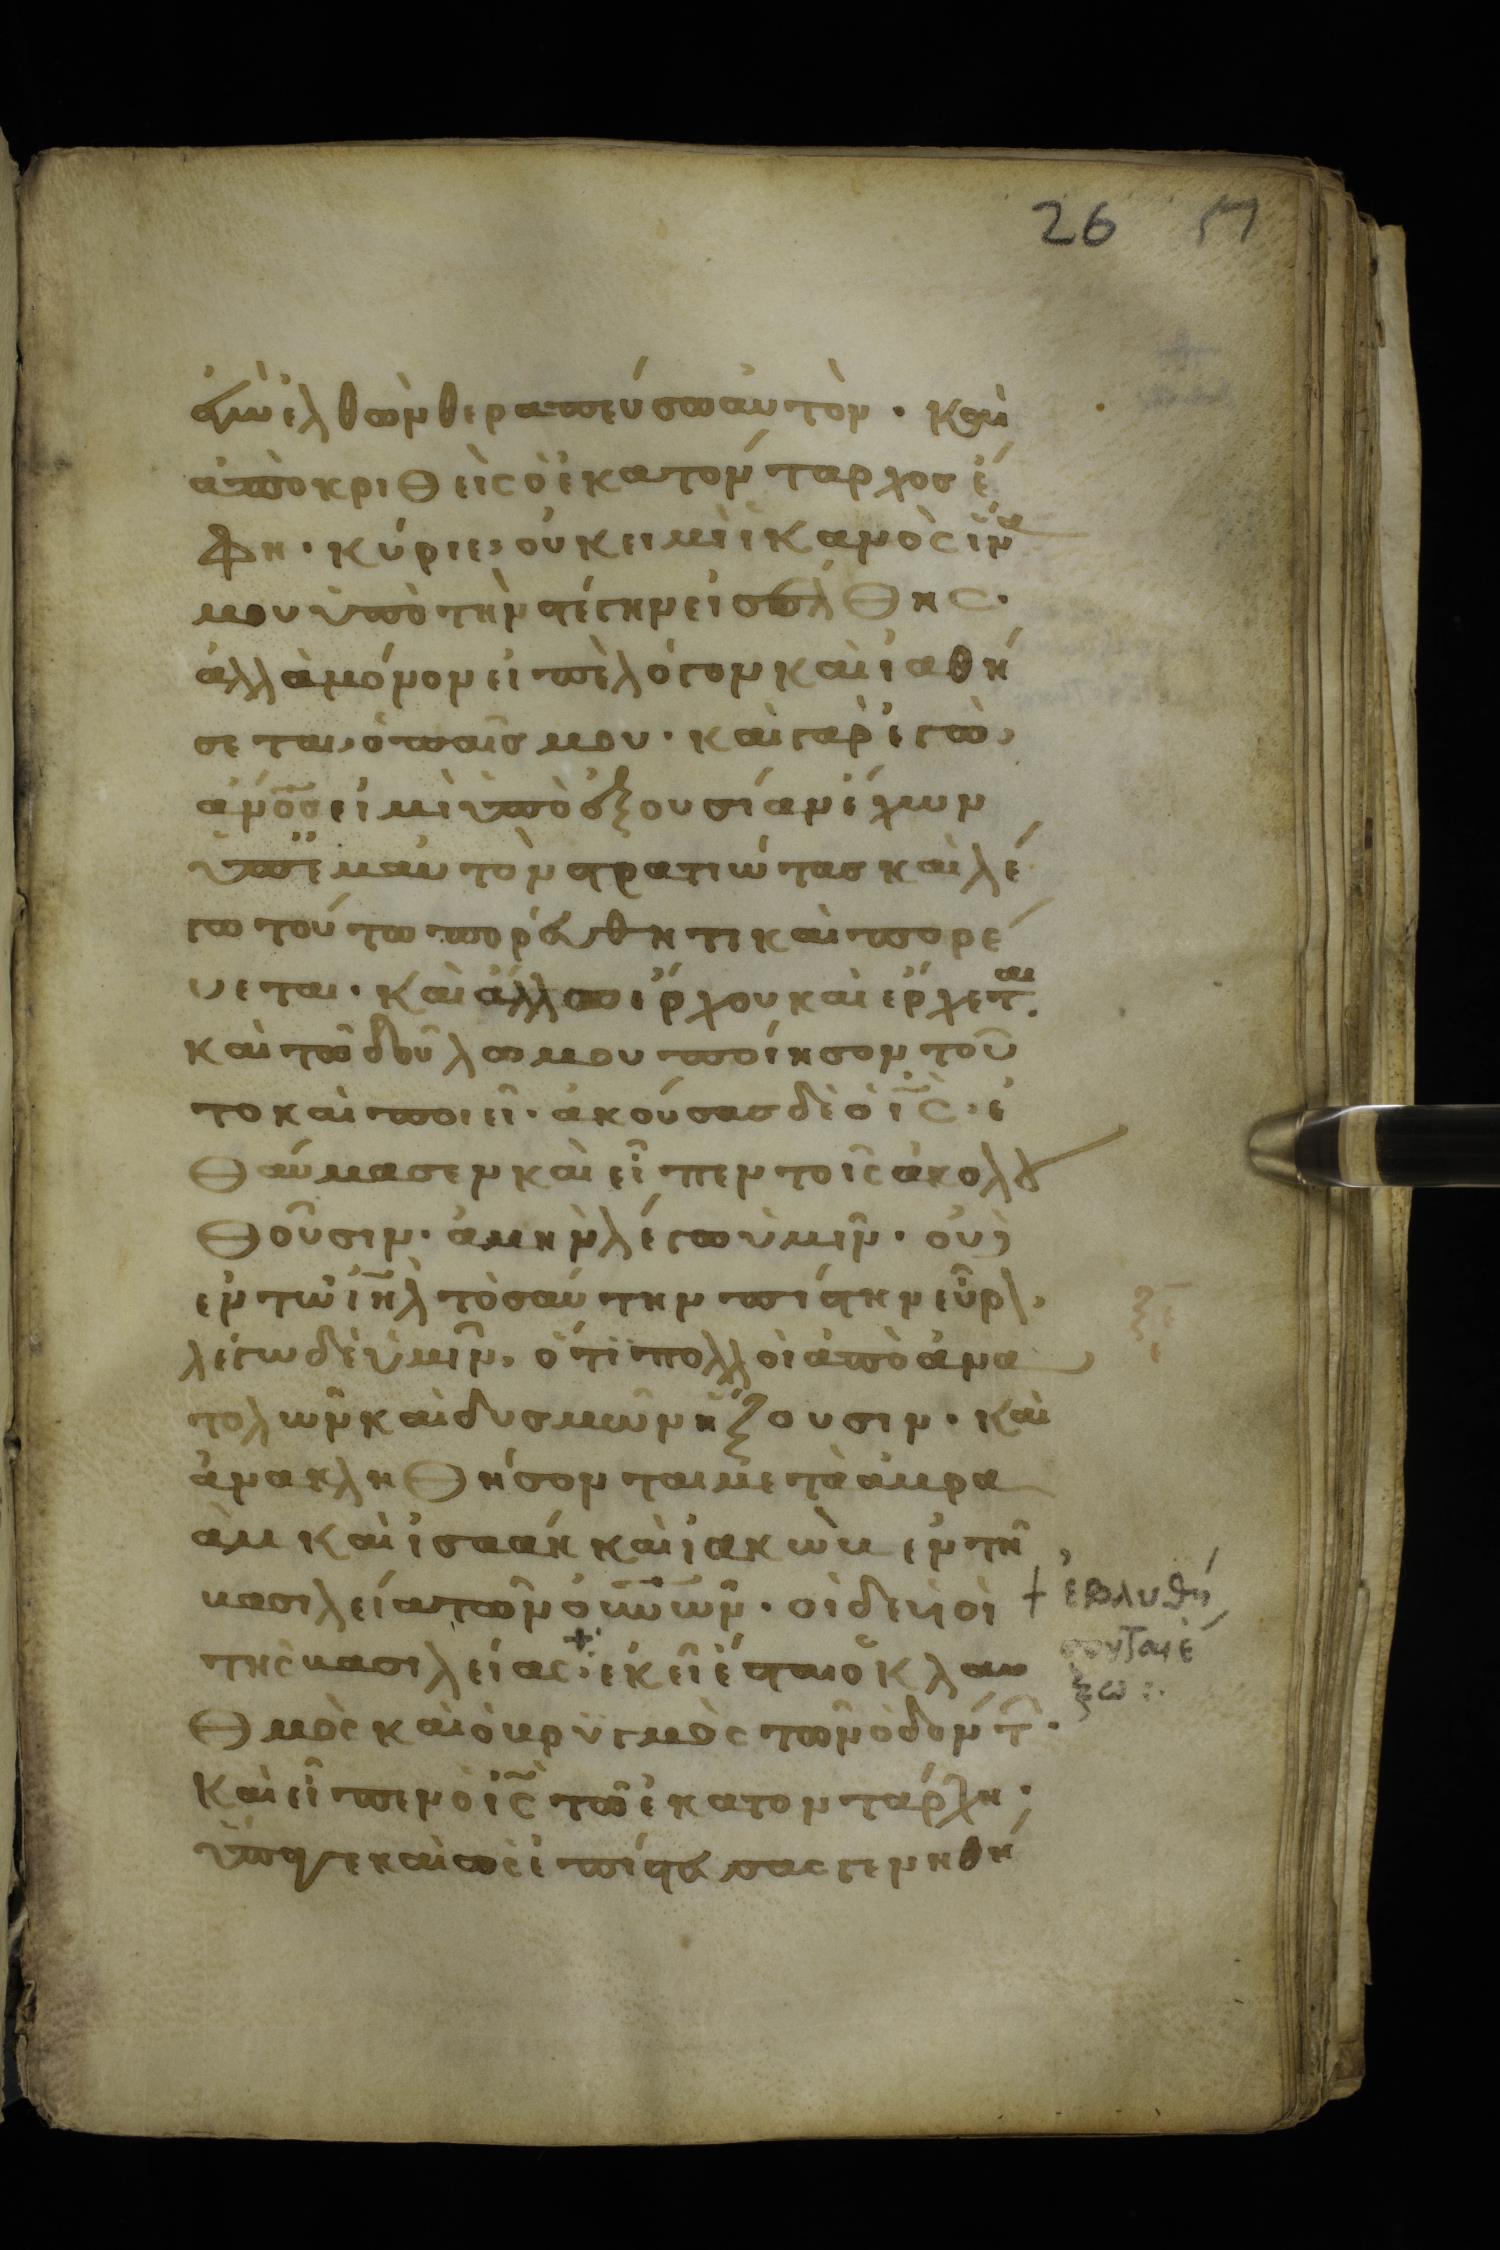 26
ἐγὼ ἐλθὼν θεραπεύσω αὐτὸν · καὶ
ἀποκριθεὶς ὁ ἑκατόνταρχος ἔ
φη · κύριε, οὐκ εἰμὶ ἱκανὸς ἵνα
μου ὑπὸ τὴν στέγην εἰσέλθης ·
ἀλλὰ μόνον εἰπὲ λόγον καὶ ἰαθή
σεται, ὁ παῖς μου · καὶ γὰρ ἐγὼ,
ἄν̅ο̅ς̅ εἰμὶ ὑπὸ ἐξουσίαν ἔχων
ὑπ' ἐμαυτὸν στρατιώτας καὶ λέ
γω τούτω πορεύθητι καὶ πορέ
υεται · καὶ ἄλλω ἔρχου καὶ ἔρχεται.
καὶ τῶ δούλω μου ποίησον τοῦ
το καὶ ποιεῖ · ἀκούσας δὲ ὁ ι̅ς̅ · ἐ
θαύμασεν καὶ εἶπεν τοῖς ἀκολου
θοῦσιν · ἀμὴν λέγω ὑμῖν · οὐδὲ
ἐν τῶ ι̅η̅λ̅ τοσαύτην πίστιν εὗρον,
λέγω δὲ ὑμῖν, ὅτι πολλοὶ ἀπὸ ἀνα
τολῶν καὶ δυσμῶν ἥξουσιν · καὶ
ἀνακληθήσονται μετὰ ἀβρα
ὰμ καὶ ἰσαὰκ καὶ ἰακὼβ ἐν τῆ
βασιλεία τῶν ο̅υ̅ν̅ω̅ν̅ · οἱ δὲ υἱοὶ
τῆς βασιλείας + · ἐκεῖ ἔσται ὁ κλαυ
θμὸς καὶ ὁ βρυγμὸς τῶν ὀδόντ ·
καὶ εἶπεν ὁ ι̅ς̅ τῶ ἑκατοντάρχη ·
ὕπαγε καὶ ὡς ἐπίστευσας γενηθή
ξ̅ε̅
+ ἐβλυθή
σονται ἔ
ξω :·